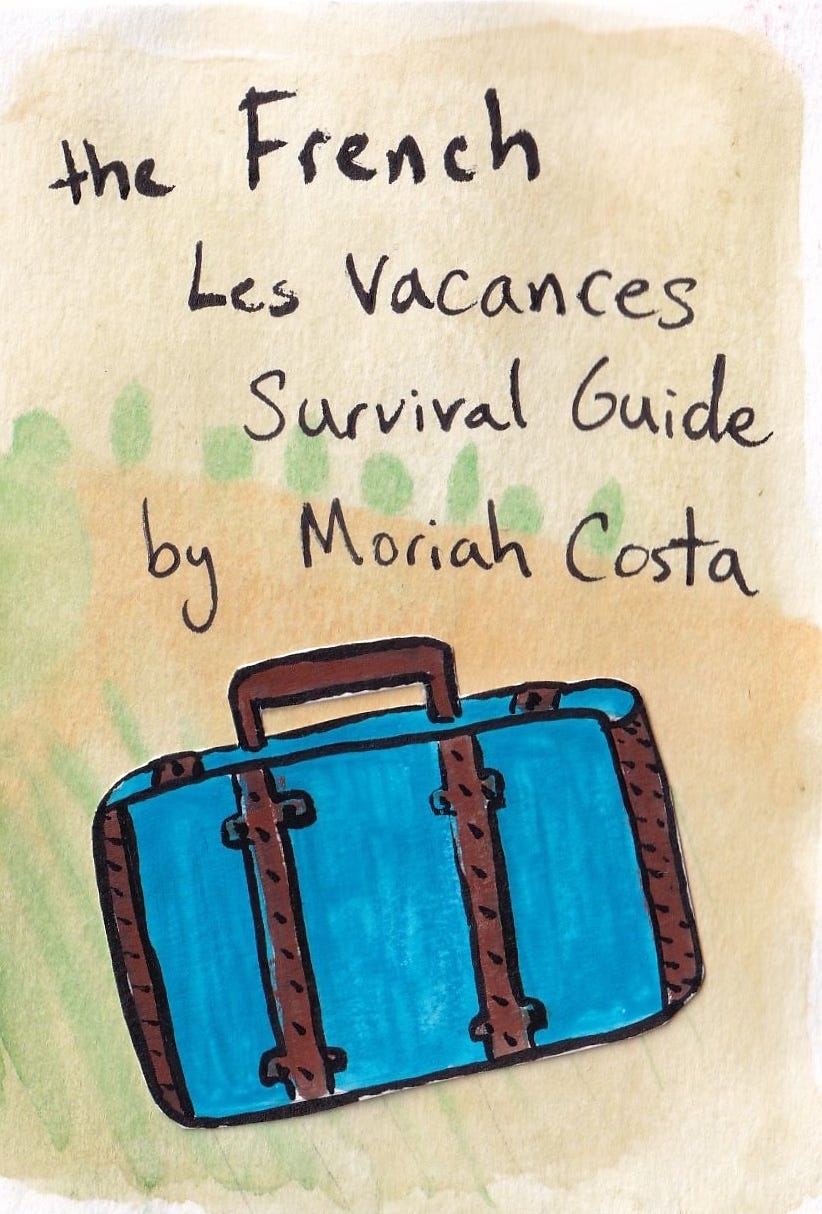 the French
Les Vacances
Survival Guide
by Moriah Costa